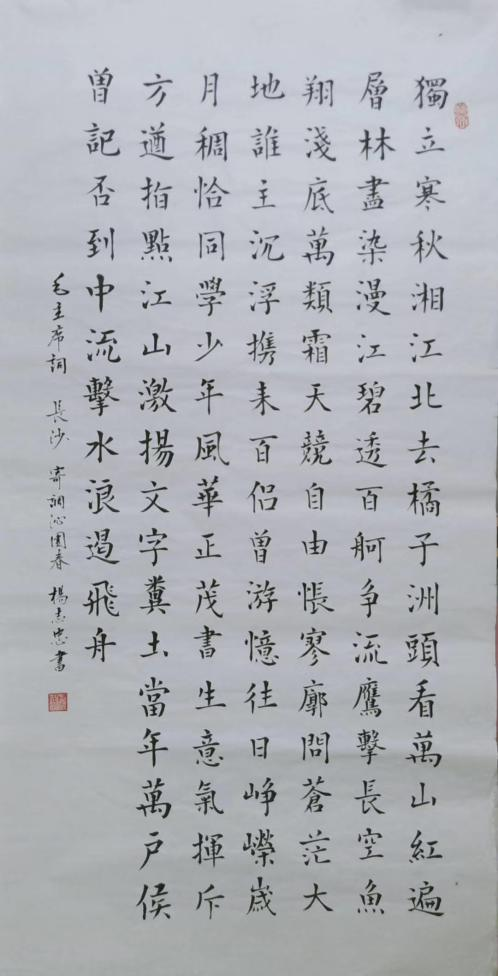 獨立寒秋湘江北去橘子洲頭看萬山紅遍
層林盡染漫江碧透百舸争流鷹擊長空魚
翔淺底萬類霜天競自由悵寥廓問蒼茫大
地誰主沉浮携来百侣曾游憶往日崢嶸歲
月稠恰同學少年風華正茂書生意氣揮斥
方遒指點江山激揚文字糞土當年萬户侯
曾記否到中流擊水浪遏飛舟
毛主席詞 長沙 寄調沁園春 楊志忠書